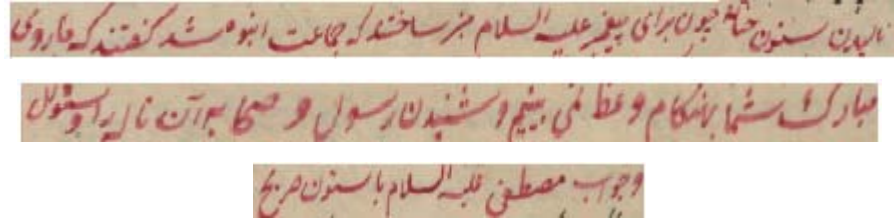 نالیدن ستون حنانه چون برای پیغمبر علیه السلام منبر ساختند که جماعت انبوه شد گفتند که ما روی
مبارک شما بهنگام وعظ نمی بینیم و شنیدن رسول و صحابه آن ناله را و سئوال
و جواب مصطفی علیه السلام با ستون صریح